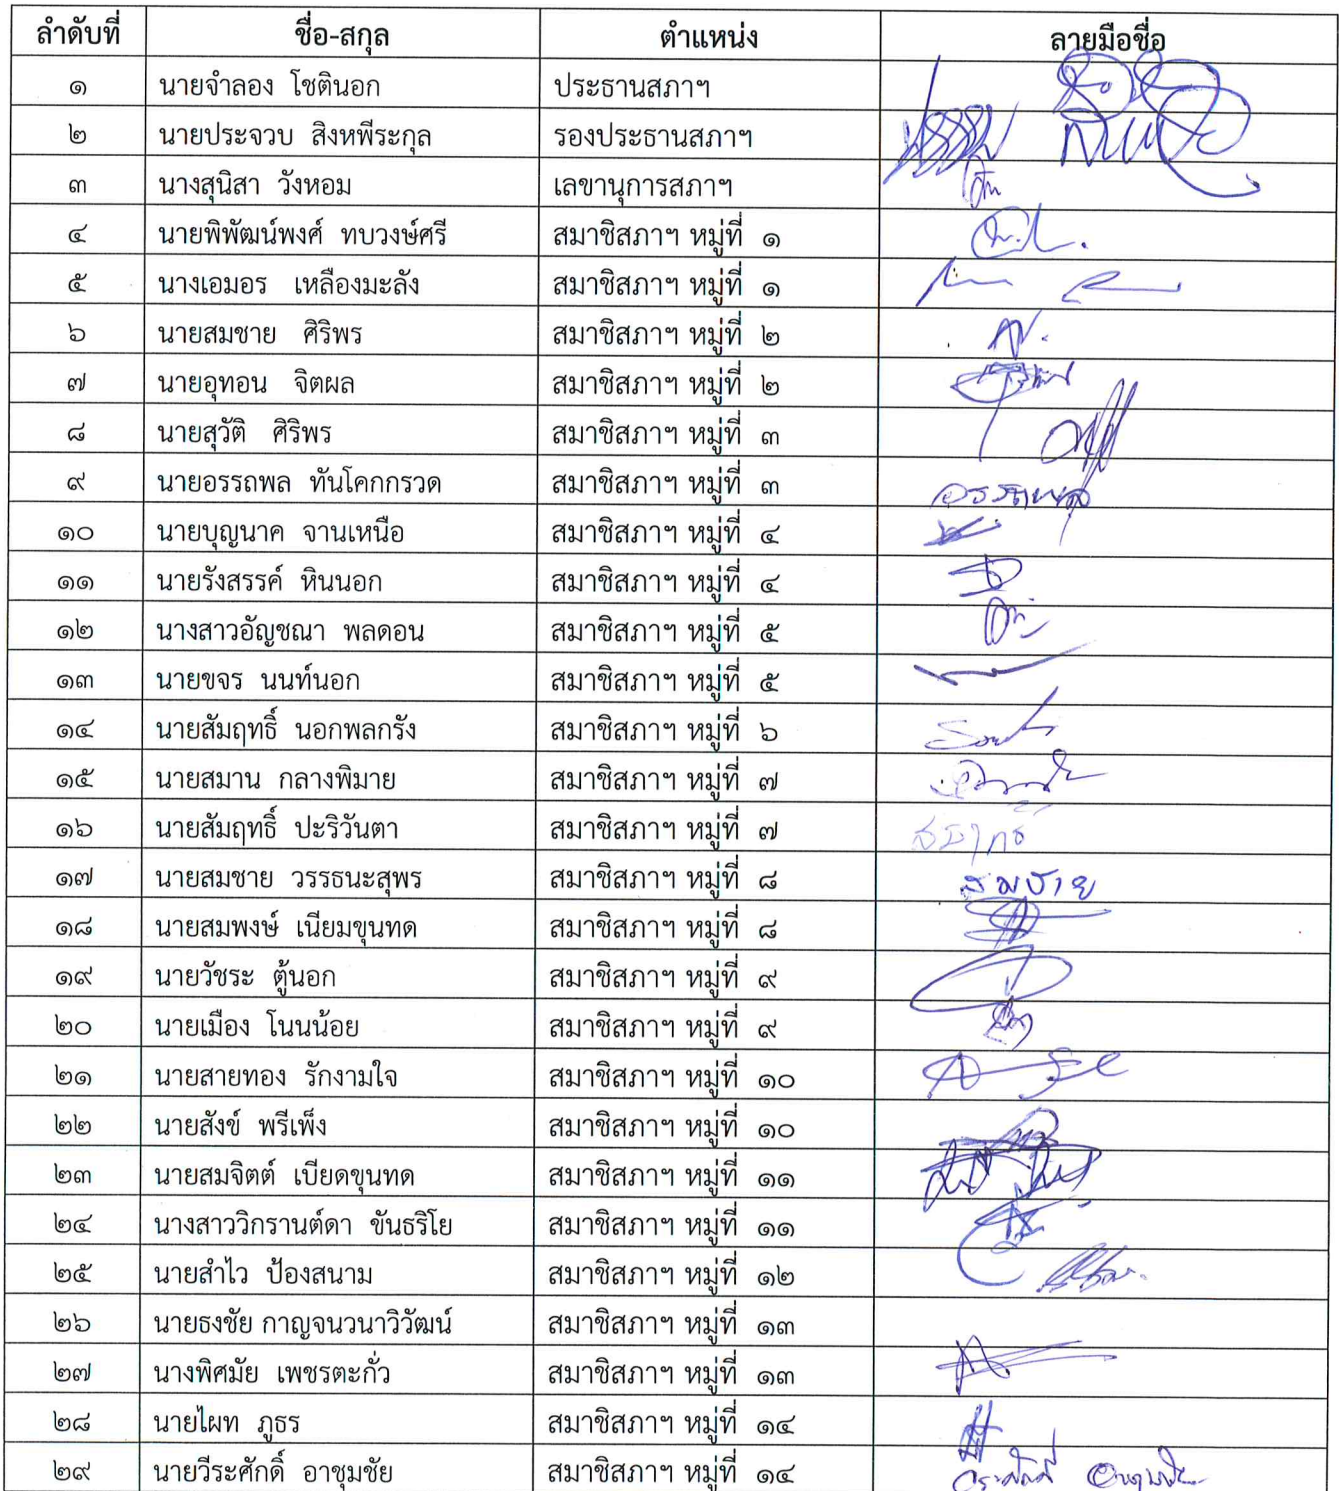 ลำดับที่ ชื่อ-สกุล ตำแหน่ง ลายมือชื่อ
๑ นายจำลอง โชตินอก ประธานสภาฯ
๒ นายประจวบ สิงหพีระกุล รองประธานสภาฯ
๓ นางสุนิสา วังหอม เลขานุการสภาฯ
๔ นายพิพัฒน์พงศ์ ทบวงษ์ศรี สมาชิสภาฯ หมู่ที่ ๑
๕ นางเอมอร เหลืองมะลัง สมาชิสภาฯ หมู่ที่ ๑
๖ นายสมชาย ศิริพร สมาชิสภาฯ หมู่ที่ ๒
๗ นายอุทอน จิตผล สมาชิสภาฯ หมู่ที่ ๒
๘ นายสุวัติ ศิริพร สมาชิสภาฯ หมู่ที่ ๓
๙ นายอรรถพล ทันโคกกรวด สมาชิสภาฯ หมู่ที่ ๓ อรรถพล
๑๐ นายบุญนาค จานเหนือ สมาชิสภาฯ หมู่ที่ ๔
๑๑ นายรังสรรค์ หินนอก สมาชิสภาฯ หมู่ที่ ๔
๑๒ นางสาวอัญชณา พลดอน สมาชิสภาฯ หมู่ที่ ๕
๑๓ นายขจร นนท์นอก สมาชิสภาฯ หมู่ที่ ๕
๑๔ นายสัมฤทธิ์ นอกพลกรัง สมาชิสภาฯ หมู่ที่ ๖
๑๕ นายสมาน กลางพิมาย สมาชิสภาฯ หมู่ที่ ๗
๑๖ นายสัมฤทธิ์ ปะริวันตา สมาชิสภาฯ หมู่ที่ ๗
๑๗ นายสมชาย วรรธนะสุพร สมาชิสภาฯ หมู่ที่ ๘ สมชาย
๑๘ นายสมพงษ์ เนียมขุนทด สมาชิสภาฯ หมู่ที่ ๘
๑๙ นายวัชระ ตู้นอก สมาชิสภาฯ หมู่ที่ ๙
๒๐ นายเมือง โนนน้อย สมาชิสภาฯ หมู่ที่ ๙
๒๑ นายสายทอง รักงามใจ สมาชิสภาฯ หมู่ที่ ๑๐
๒๒ นายสังข์ พรีเพ็ง สมาชิสภาฯ หมู่ที่ ๑๐
๒๓ นายสมจิตต์ เบียดขุนทด สมาชิสภาฯ หมู่ที่ ๑๑
๒๔ นางสาววิกรานต์ดา ขันธริโย สมาชิสภาฯ หมู่ที่ ๑๑
๒๕ นายสำไว ป้องสนาม สมาชิสภาฯ หมู่ที่ ๑๒
๒๖ นายธงชัย กาญจนวนาวิวัฒน์ สมาชิสภาฯ หมู่ที่ ๑๓
๒๗ นางพิศมัย เพชรตะกั่ว สมาชิสภาฯ หมู่ที่ ๑๓
๒๘ นายไผท ภูธร สมาชิสภาฯ หมู่ที่ ๑๔
๒๙ นายวีระศักดิ์ อาชุมชัย สมาชิสภาฯ หมู่ที่ ๑๔